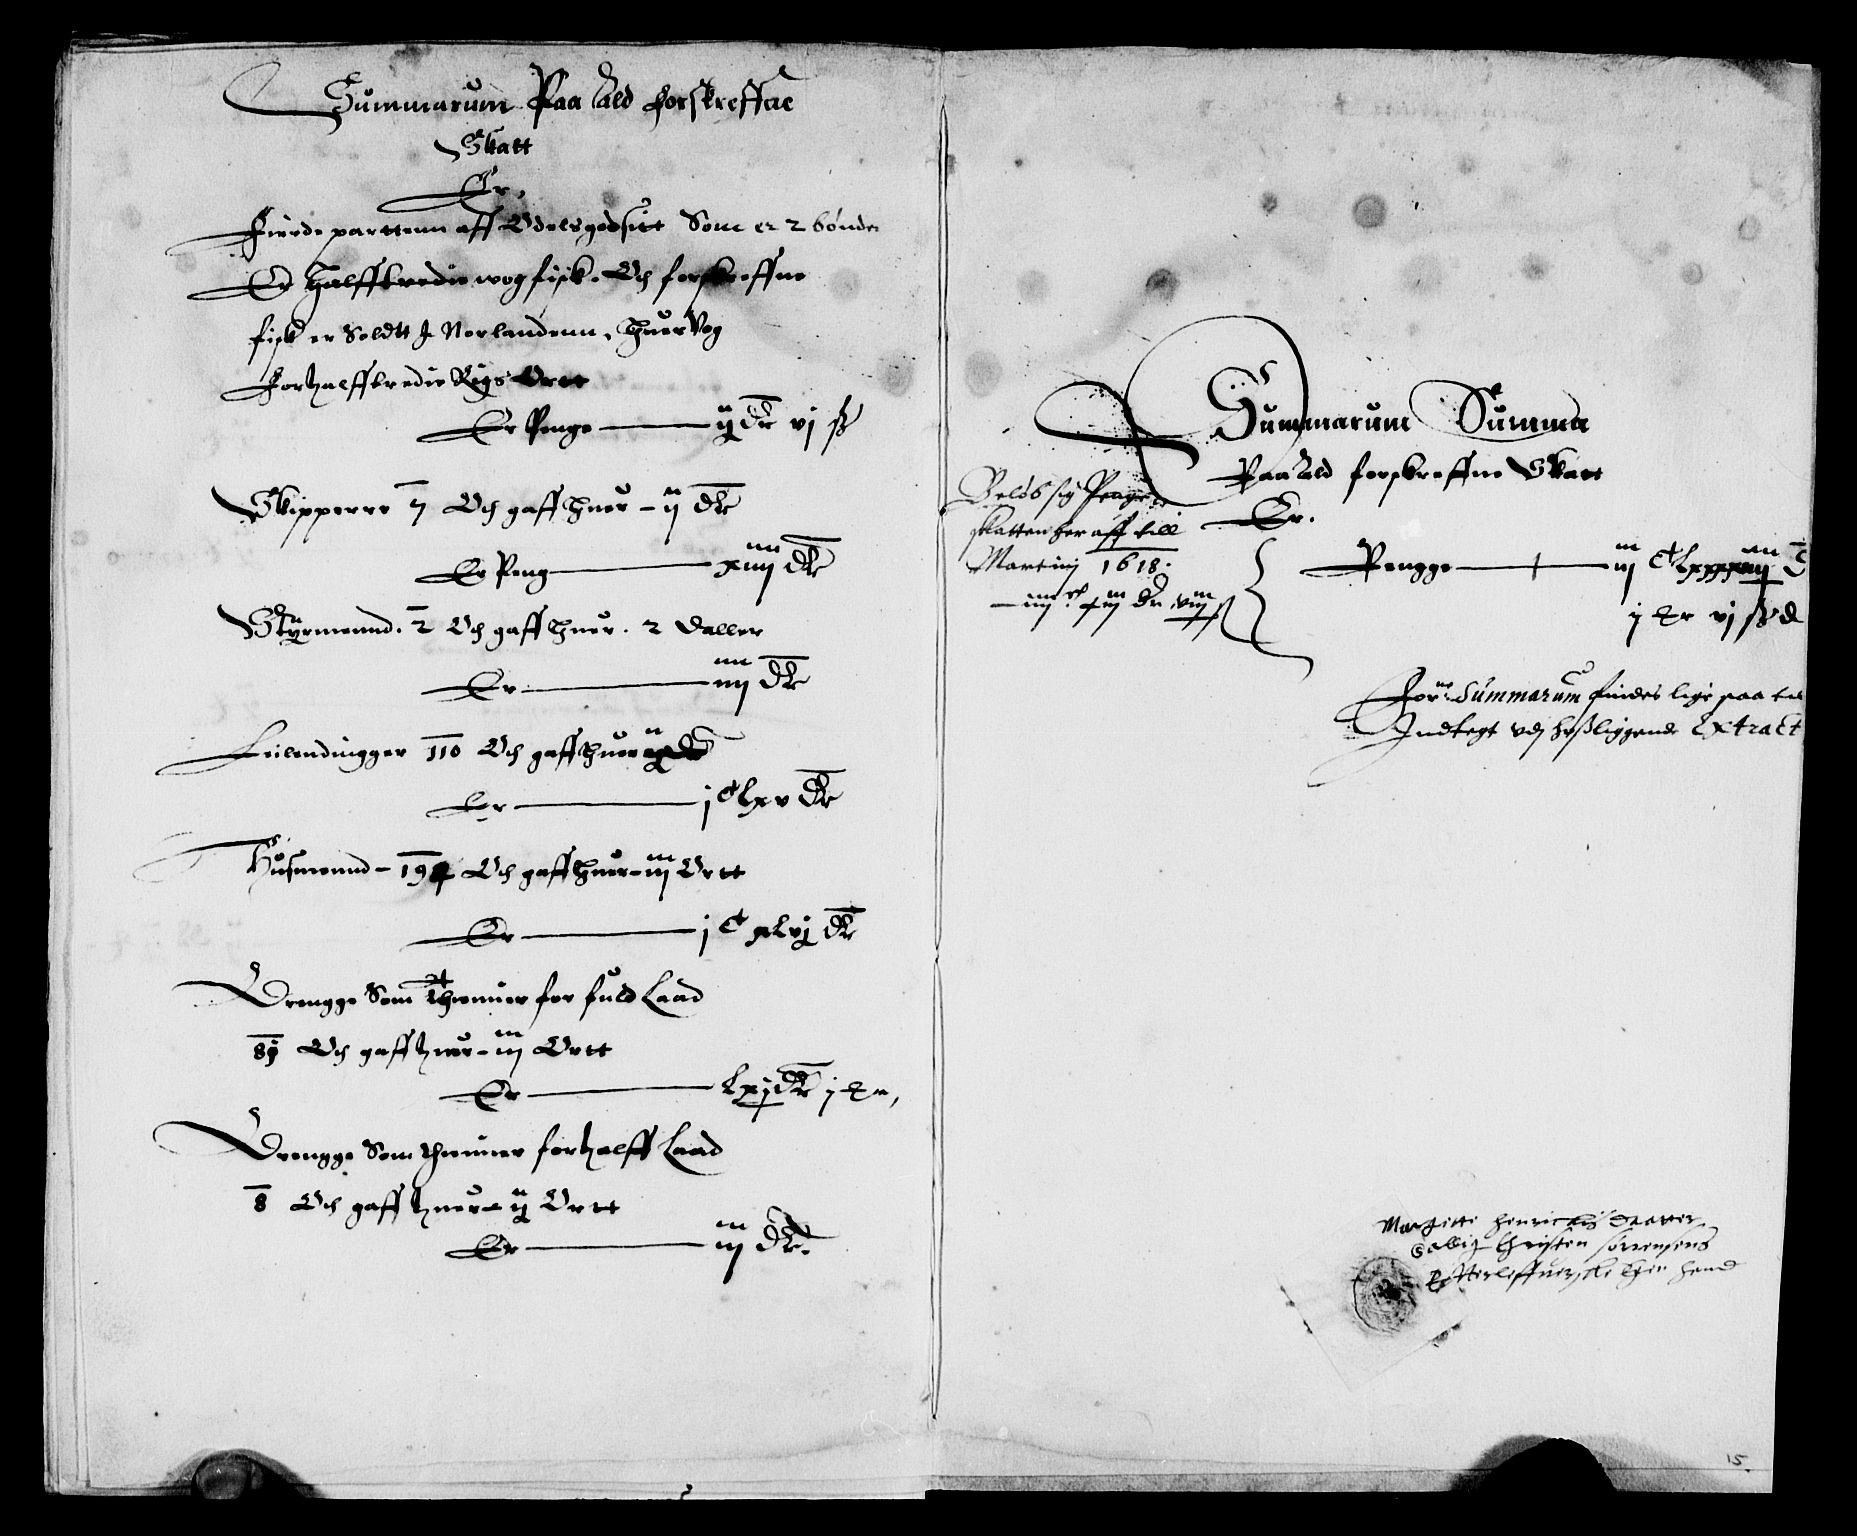 Summarum Paa ald forskreffne
Skatt
Er,
Fierde parttenn aff Odelsgodsitt Som er 2 bønder
Er halfftredie wog fisk. Och forskreffne
fisk er Soldtt J Norlandenn, huer Vog
For halfftredie Rigs Ortt
Er Penge — ij dlr vj ß
Skipperre 7 Och gaff huer - ij dlr
Er Peng — xiiij dlr
Styrmennd. 2 Och gaff huer. 2 daller
Er — iiij dlr
Leilendingger 110 Och gaff huer
Er — j C Lxv dlr
Husmennd - 194 Och gaff huer - iij Ortt
Er — j C xLvj dlr
Drengge Som thienner for fuld Laad
Och gaff huer - iij Ortt
Er — Lxj dlr j Ort,
Drengge Som thienner for halff Laad
8 Och gaff huer - ij Ortt
Er — iij dlr.
Summarum Summa
Paa ald forskreffne Skatt
Er.
Beløb sig Penge
skatten her aff till
Martinj 1618.
Pengge — iij C
j Ort vj ß d
Forne Summarum findes lige saa till
Indtegt vdj hosliggende Extract
Margette henrichis daatter
Salliig Christen sørrensens
Efterleffuerske Egen hand
15